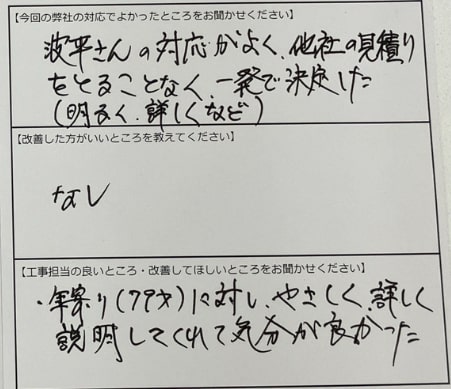 【今回の弊社の対応でよかったところをお聞かせください】
波平さんの対応がよく、他社の見積り
をとることなく、一発で決定した
(明るく、詳しくなど)
【改善した方がいいところを教えてください】
なし
【工事担当の良いところ・改善してほしいところをお聞かせください】
・年寄り(79才)に対し、やさしく、詳しく
説明してくれて気分が良かった